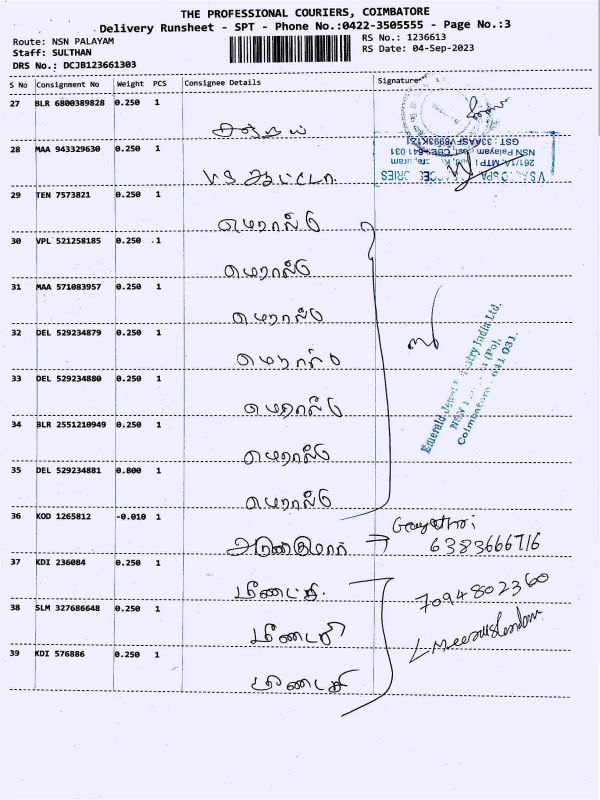 THE PROFESSIONAL COURIERS, COIMBATORE
Delivery Runsheet - SPT - Phone No.:0422-3505555 - Page No.:3
Route: NSN PALAYAM
Staff: SULTHAN
DRS No.: DCJB123661303
RS No.: 1236613
RS Date: 04-Sep-2023
S No Consignment No Weight PCS Consignee Details Signature
27 BLR 6800389828 0.250 1
28 MAA 943329630 0.250 1
VS ஆட்டோ
29 TEN 7573821 0.250 1
எமரால்டு
30 VPL 521258185 0.250 1
எமரால்டு
31 MAA 571083957 0.250 1
எமரால்டு
32 DEL 529234879 0.250 1
எமரால்டு
33 DEL 529234880 0.250 1
எமரால்டு
34 BLR 2551210949 0.250 1
எமரால்டு
35 DEL 529234881 0.800 1
எமரால்டு
Emerald Jewel Industry India Ltd.
NSN (Po),
Coimbatore - 641 031.
36 KOD 1265812 -0.010 1
அருண்குமார் → Gayathri
6383666716
37 KDI 236084 0.250 1
7094802360
38 SLM 327686648 0.250 1
39 KDI 576886 0.250 1